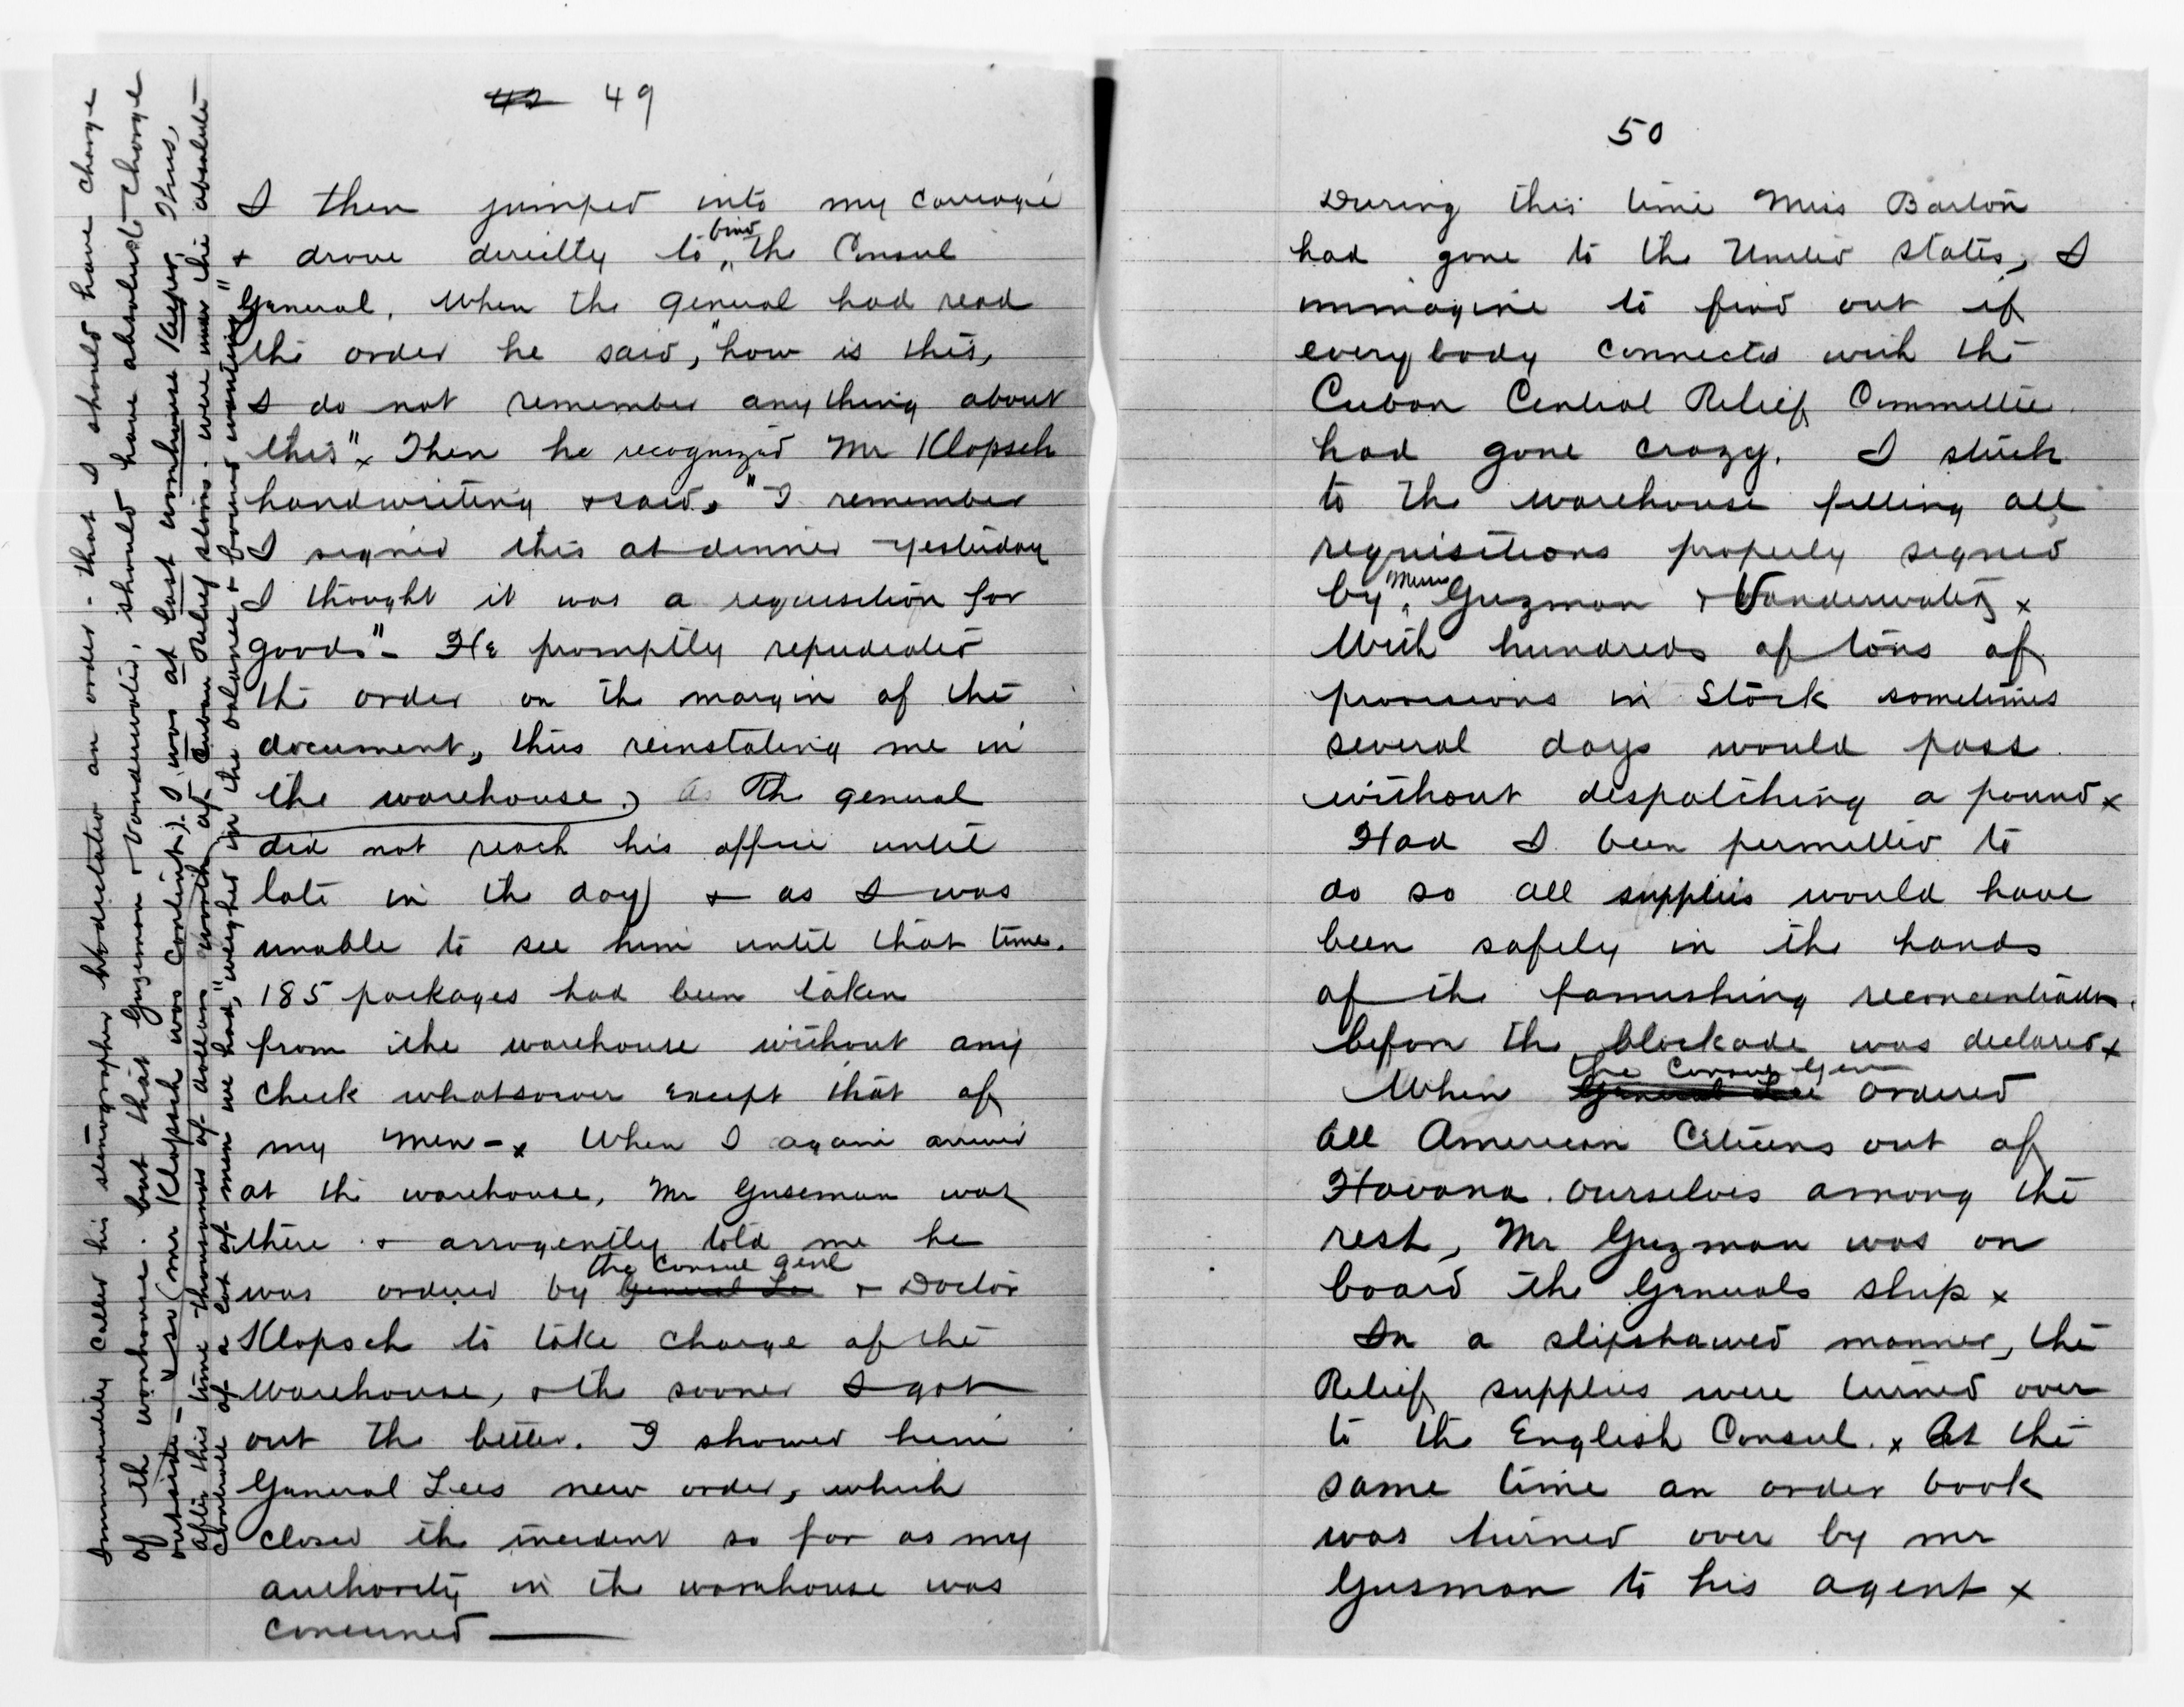 42 49
I then jumped into my carriage
+ drove directly to find the Consul
General. When the general had read
the order he said, "how is this,
I do not remember any thing about
this" x Then he recognized Mr Klopsch
handwriting + said, "I remember
I signed this at dinner yesterday
I thought it was a requisition for
goods" - He promptly repudiated
the order on the margin of the
document, thus reinstating me in
the warehouse, as The general
did not reach his office until
late in the day) + as I was
unable to see him until that time.
185 packages had been taken
from the warehouse without any
check whatsoever except that of
my men - x When I again arrived
at the warehouse, Mr Guseman was
there + arrogently told me he
was ordered by General Lee the Consul Genl + Doctor
Klopsch to take charge of the
warehouse, + the sooner I got
out the better. I showed him
General Lees new order, which
closed the incident so far as my
authority in the warehouse was
concerned
Immediately called his stenographer + dictated an order - that I should have charge
of the warehouse. but that Guzman + Vanderwater, should have absolute charge
outside - "so (mr Klopsch was content). I was at last warehouse Keeper. Thus,
after this time thousands of dollars worth of Cuban Relief stores. were under the absolute
control of a lot of men we had, "weighed in the balance + found wanting"
50
During this time Miss Barton
had gone to the United States, I
immagine to find out if
everybody connected with the
Cuban Central Relief Committee.
had gone crazy. I stuck
to the warehouse filling all
requisitions properly signed
by Messrs Guzman + Vanderwater x
With hundreds of tons of
provisions in stock sometimes
several days would pass
without despatching a pound x
Had I been permitted to
do so all supplies would have
been safely in the hands
of the famushing reconcentrados.
before the blockade was declared x
When General Lee the Consul Gen ordered
all American Citizens out of
Havana. ourselves among the
rest, Mr Guzman was on
board the Generals ship x
In a slipshawed manner, the
Relief supplies were turned over
to the English Consul. x At the
same time an order book
was turned over by mr
Gusman to his agent x